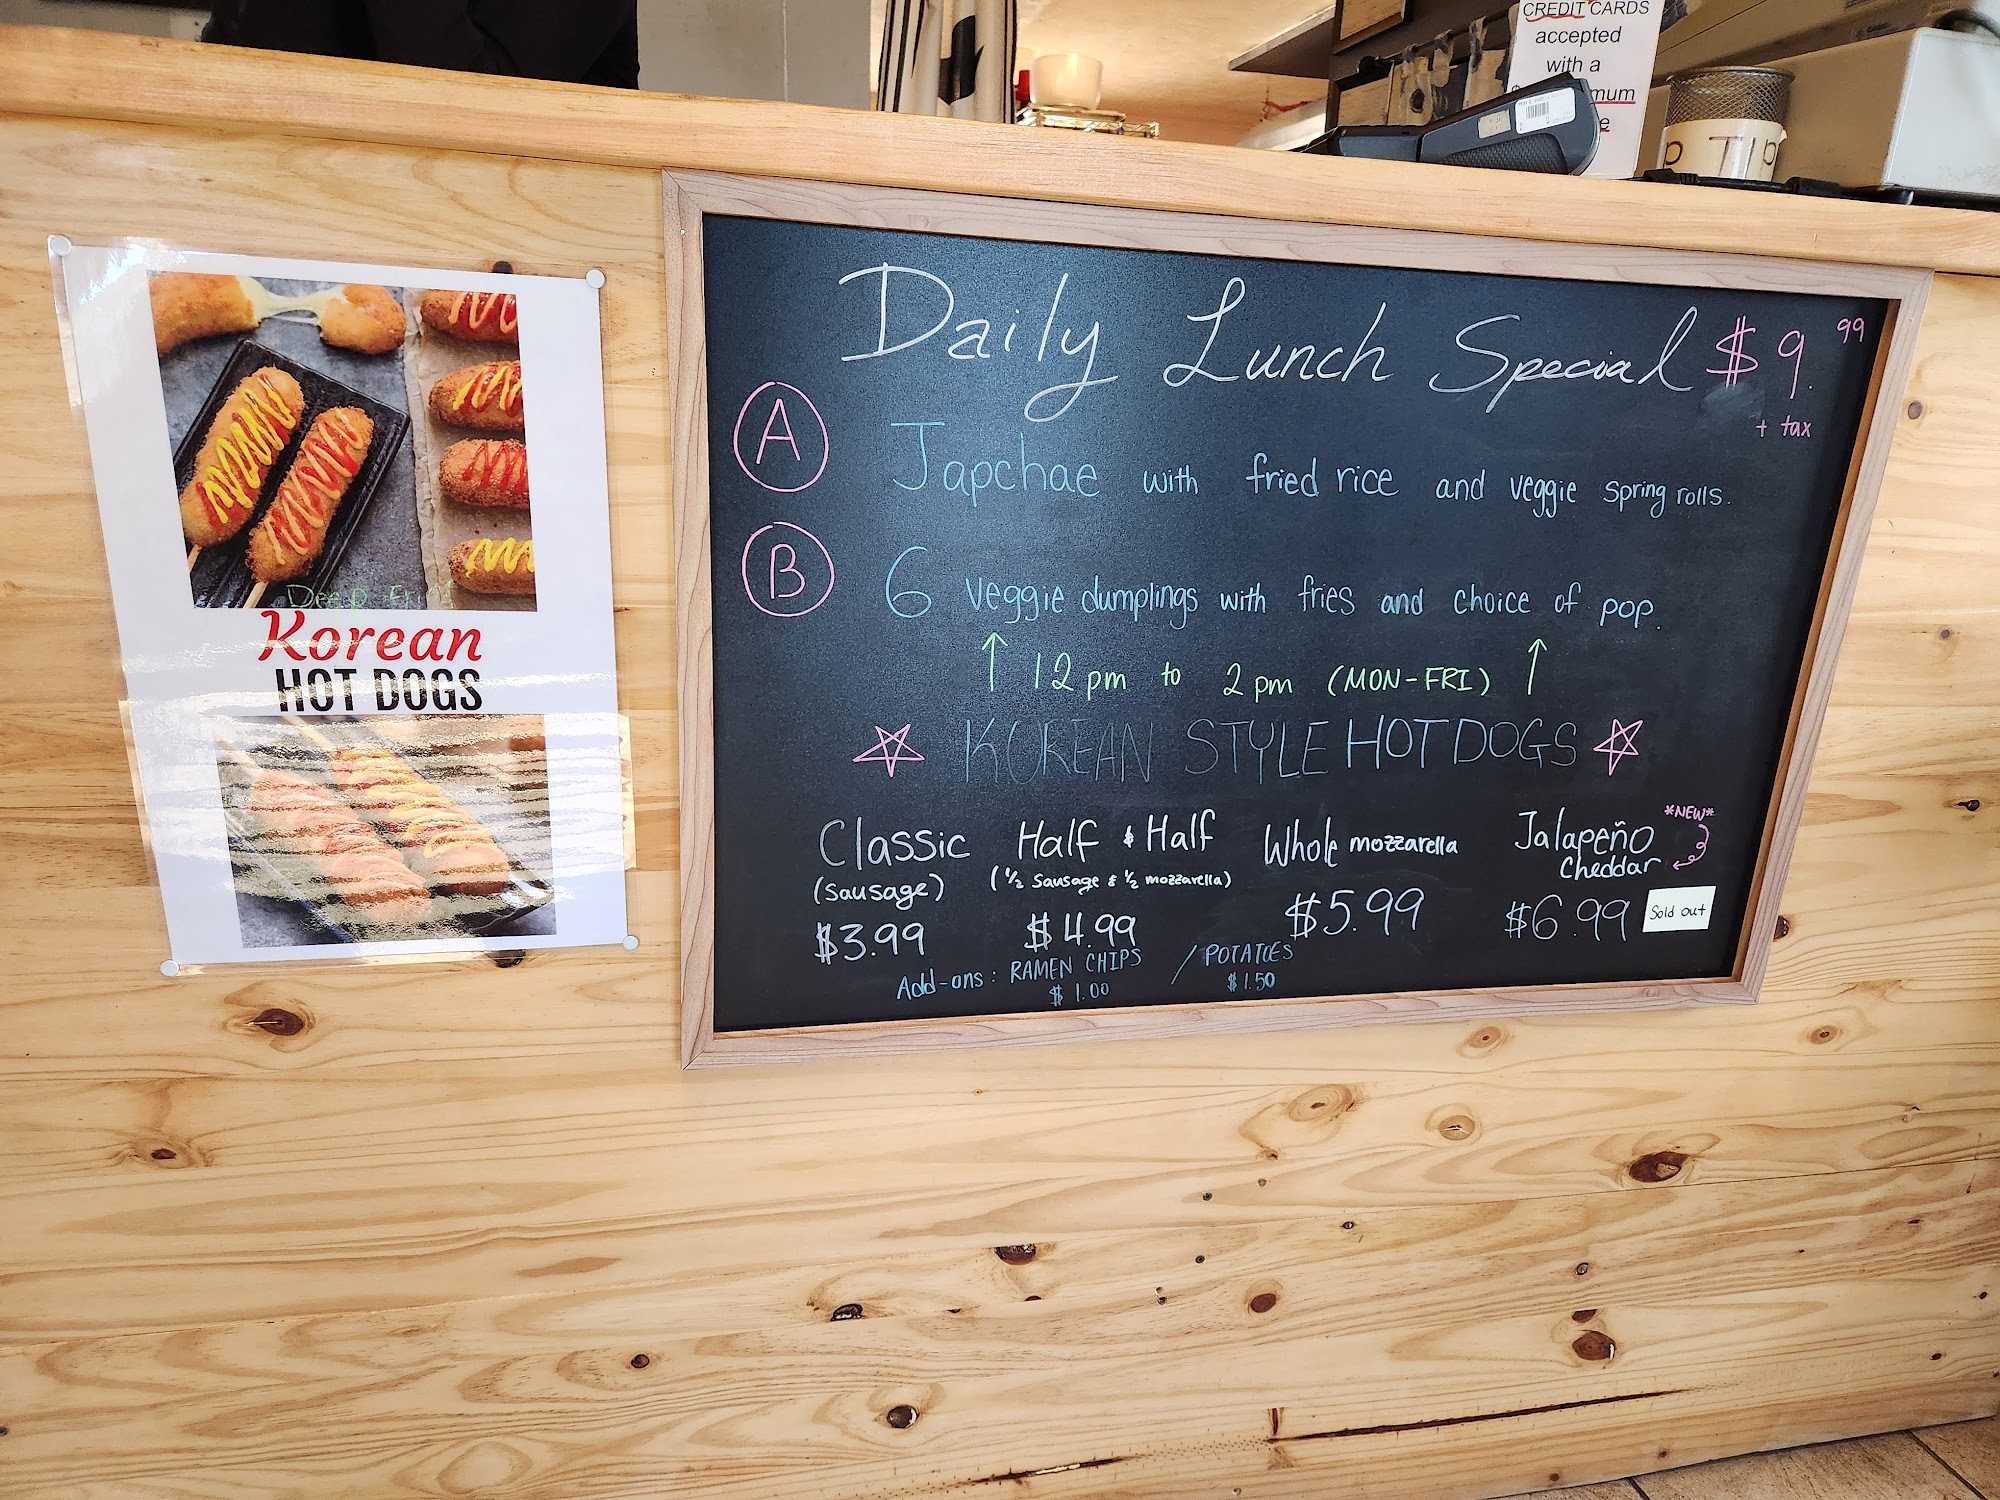 CREDIT CARDS
accepted
with a
TIP
Deep Fried
Korean
HOT DOGS
Daily Lunch Special $9.99
+ tax
A Japchae with fried rice and veggie spring rolls.
B 6 veggie dumplings with fries and choice of pop.
↑ 12 pm to 2 pm (MON-FRI) ↑
☆ KOREAN STYLE HOT DOGS ☆
Classic
(sausage)
$3.99
Half & Half
(1/2 sausage & 1/2 mozzarella)
$4.99
Whole mozzarella
$5.99
*NEW*
Jalapeño
Cheddar
$6.99
Sold out
Add-ons: RAMEN CHIPS / POTATOES
$1.00 $1.50